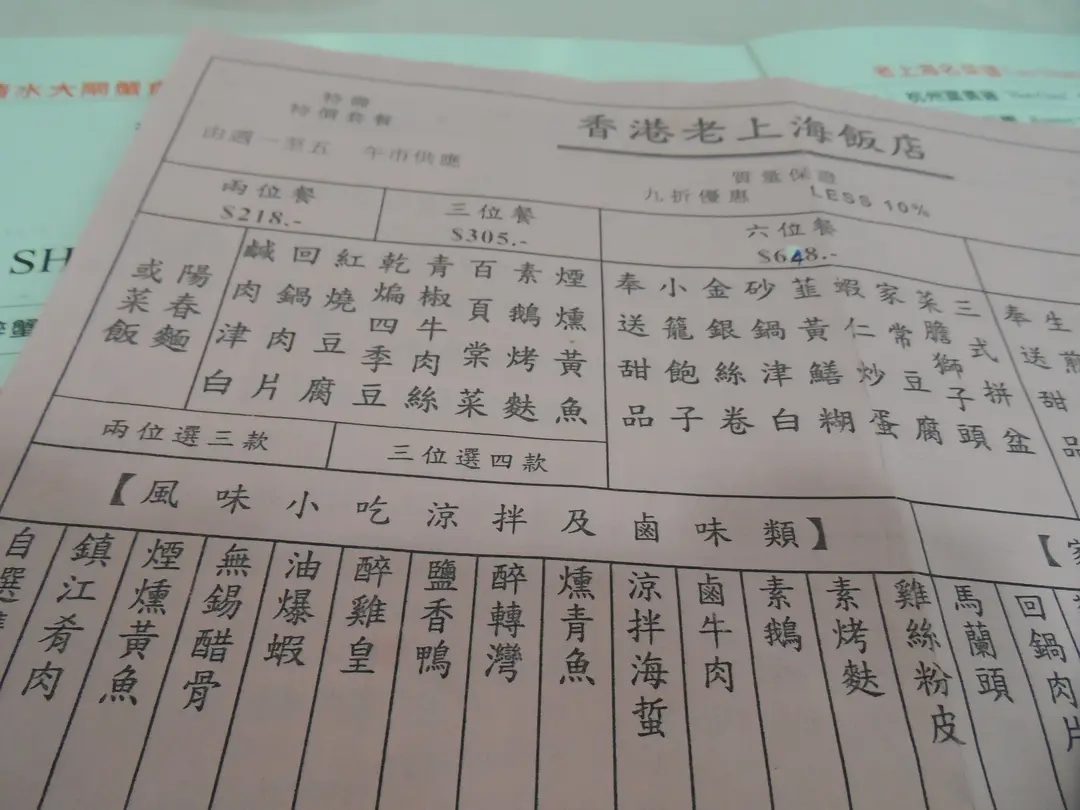 水大閘蟹
SH
特價套餐
由週一至五 午市供應
香港老上海飯店
質量保證
九折優惠 LESS 10%
兩位餐
$218.-
三位餐
$305.-
六位餐
$648.-
煙燻黃魚
素鵝烤麩
百頁棠菜
青椒牛肉絲
乾煸四季豆
紅燒豆腐
回鍋肉片
鹹肉津白
陽春麵
或菜飯
兩位選三款
三位選四款
三式拼盆
菜膽獅子頭
家常豆腐
蝦仁炒蛋
韮黃鱔糊
砂鍋津白
金銀絲卷
小籠飽子
奉送甜品
生煎
奉送甜品
【風味小吃涼拌及鹵味類】
【
回鍋肉片
馬蘭頭
雞絲粉皮
素烤麩
素鵝
鹵牛肉
涼拌海蜇
燻青魚
醉轉灣
鹽香鴨
醉雞皇
油爆蝦
無錫醋骨
煙燻黃魚
鎮江肴肉
自選